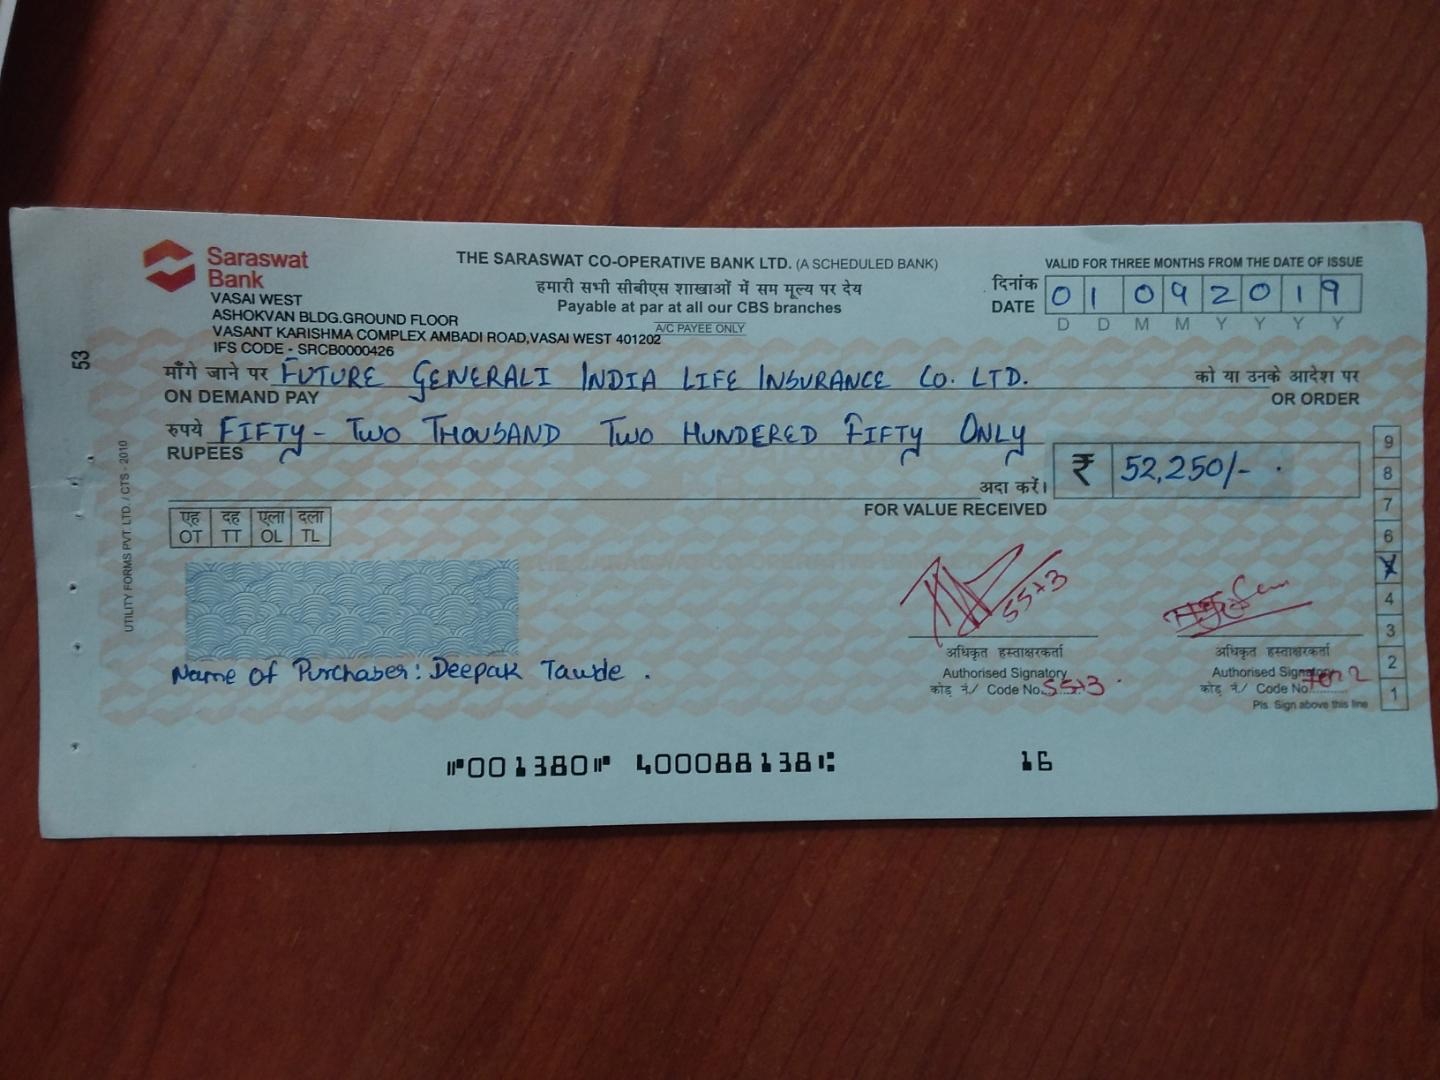 Saraswat
Bank
VASAI WEST
ASHOKVAN BLDG.GROUND FLOOR
VASANT KARISHMA COMPLEX AMBADI ROAD,VASAI WEST 401202
IFS CODE - SRCB0000426
THE SARASWAT CO-OPERATIVE BANK LTD. (A SCHEDULED BANK)
हमारी सभी सीबीएस शाखाओं में सम मूल्य पर देय
Payable at par at all our CBS branches
A/C PAYEE ONLY
VALID FOR THREE MONTHS FROM THE DATE OF ISSUE
दिनांक
DATE 0 1 0 9 2 0 1 9
D D M M Y Y Y Y
53
माँगे जाने पर FUTURE GENERALI INDIA LIFE INSURANCE CO. LTD. को या उनके आदेश पर
ON DEMAND PAY OR ORDER
रुपये FIFTY - TWO THOUSAND TWO HUNDERED FIFTY ONLY
RUPEES
अदा करें। ₹ 52,250/-
FOR VALUE RECEIVED
एह दह एला दला
OT TT OL TL
UTILITY FORMS PVT. LTD. / CTS - 2010
9
8
7
6
4
3
2
1
5573
अधिकृत हस्ताक्षरकर्ता
Authorised Signatory
कोड़ नं./ Code No. 5573
अधिकृत हस्ताक्षरकर्ता
Authorised Signatory
कोड़ नं./ Code No.
Pls. Sign above this line
Name of Purchaser: Deepak Tawde.
⑈001380⑈ 400088138⑆ 16